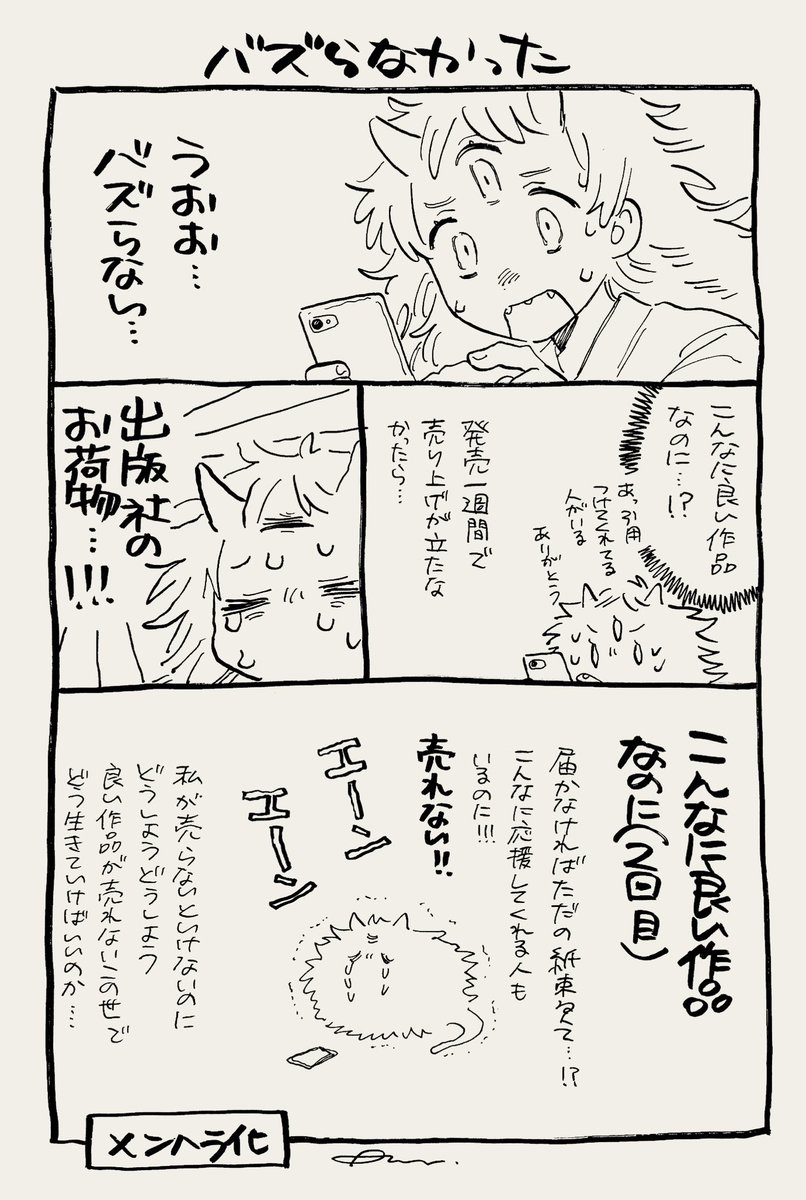 バズらなかった
うおお…
バズらない…
こんなに良い作品
なのに…!?
あっ引用
つけてくれてる
人がいる
ありがとう
発売一週間で
売り上げが立たな
かったら…
出版社の
お荷物…!!!
こんなに良い作品
なのに(2回目)
届かなければただの紙束って…!?
こんなに応援してくれる人も
いるのに!!!
売れない!!
エーン
エーン
私が売らないといけないのに
どうしようどうしよう
良い作品が売れないこの世で
どう生きていけばいいのか…
メンヘラ化